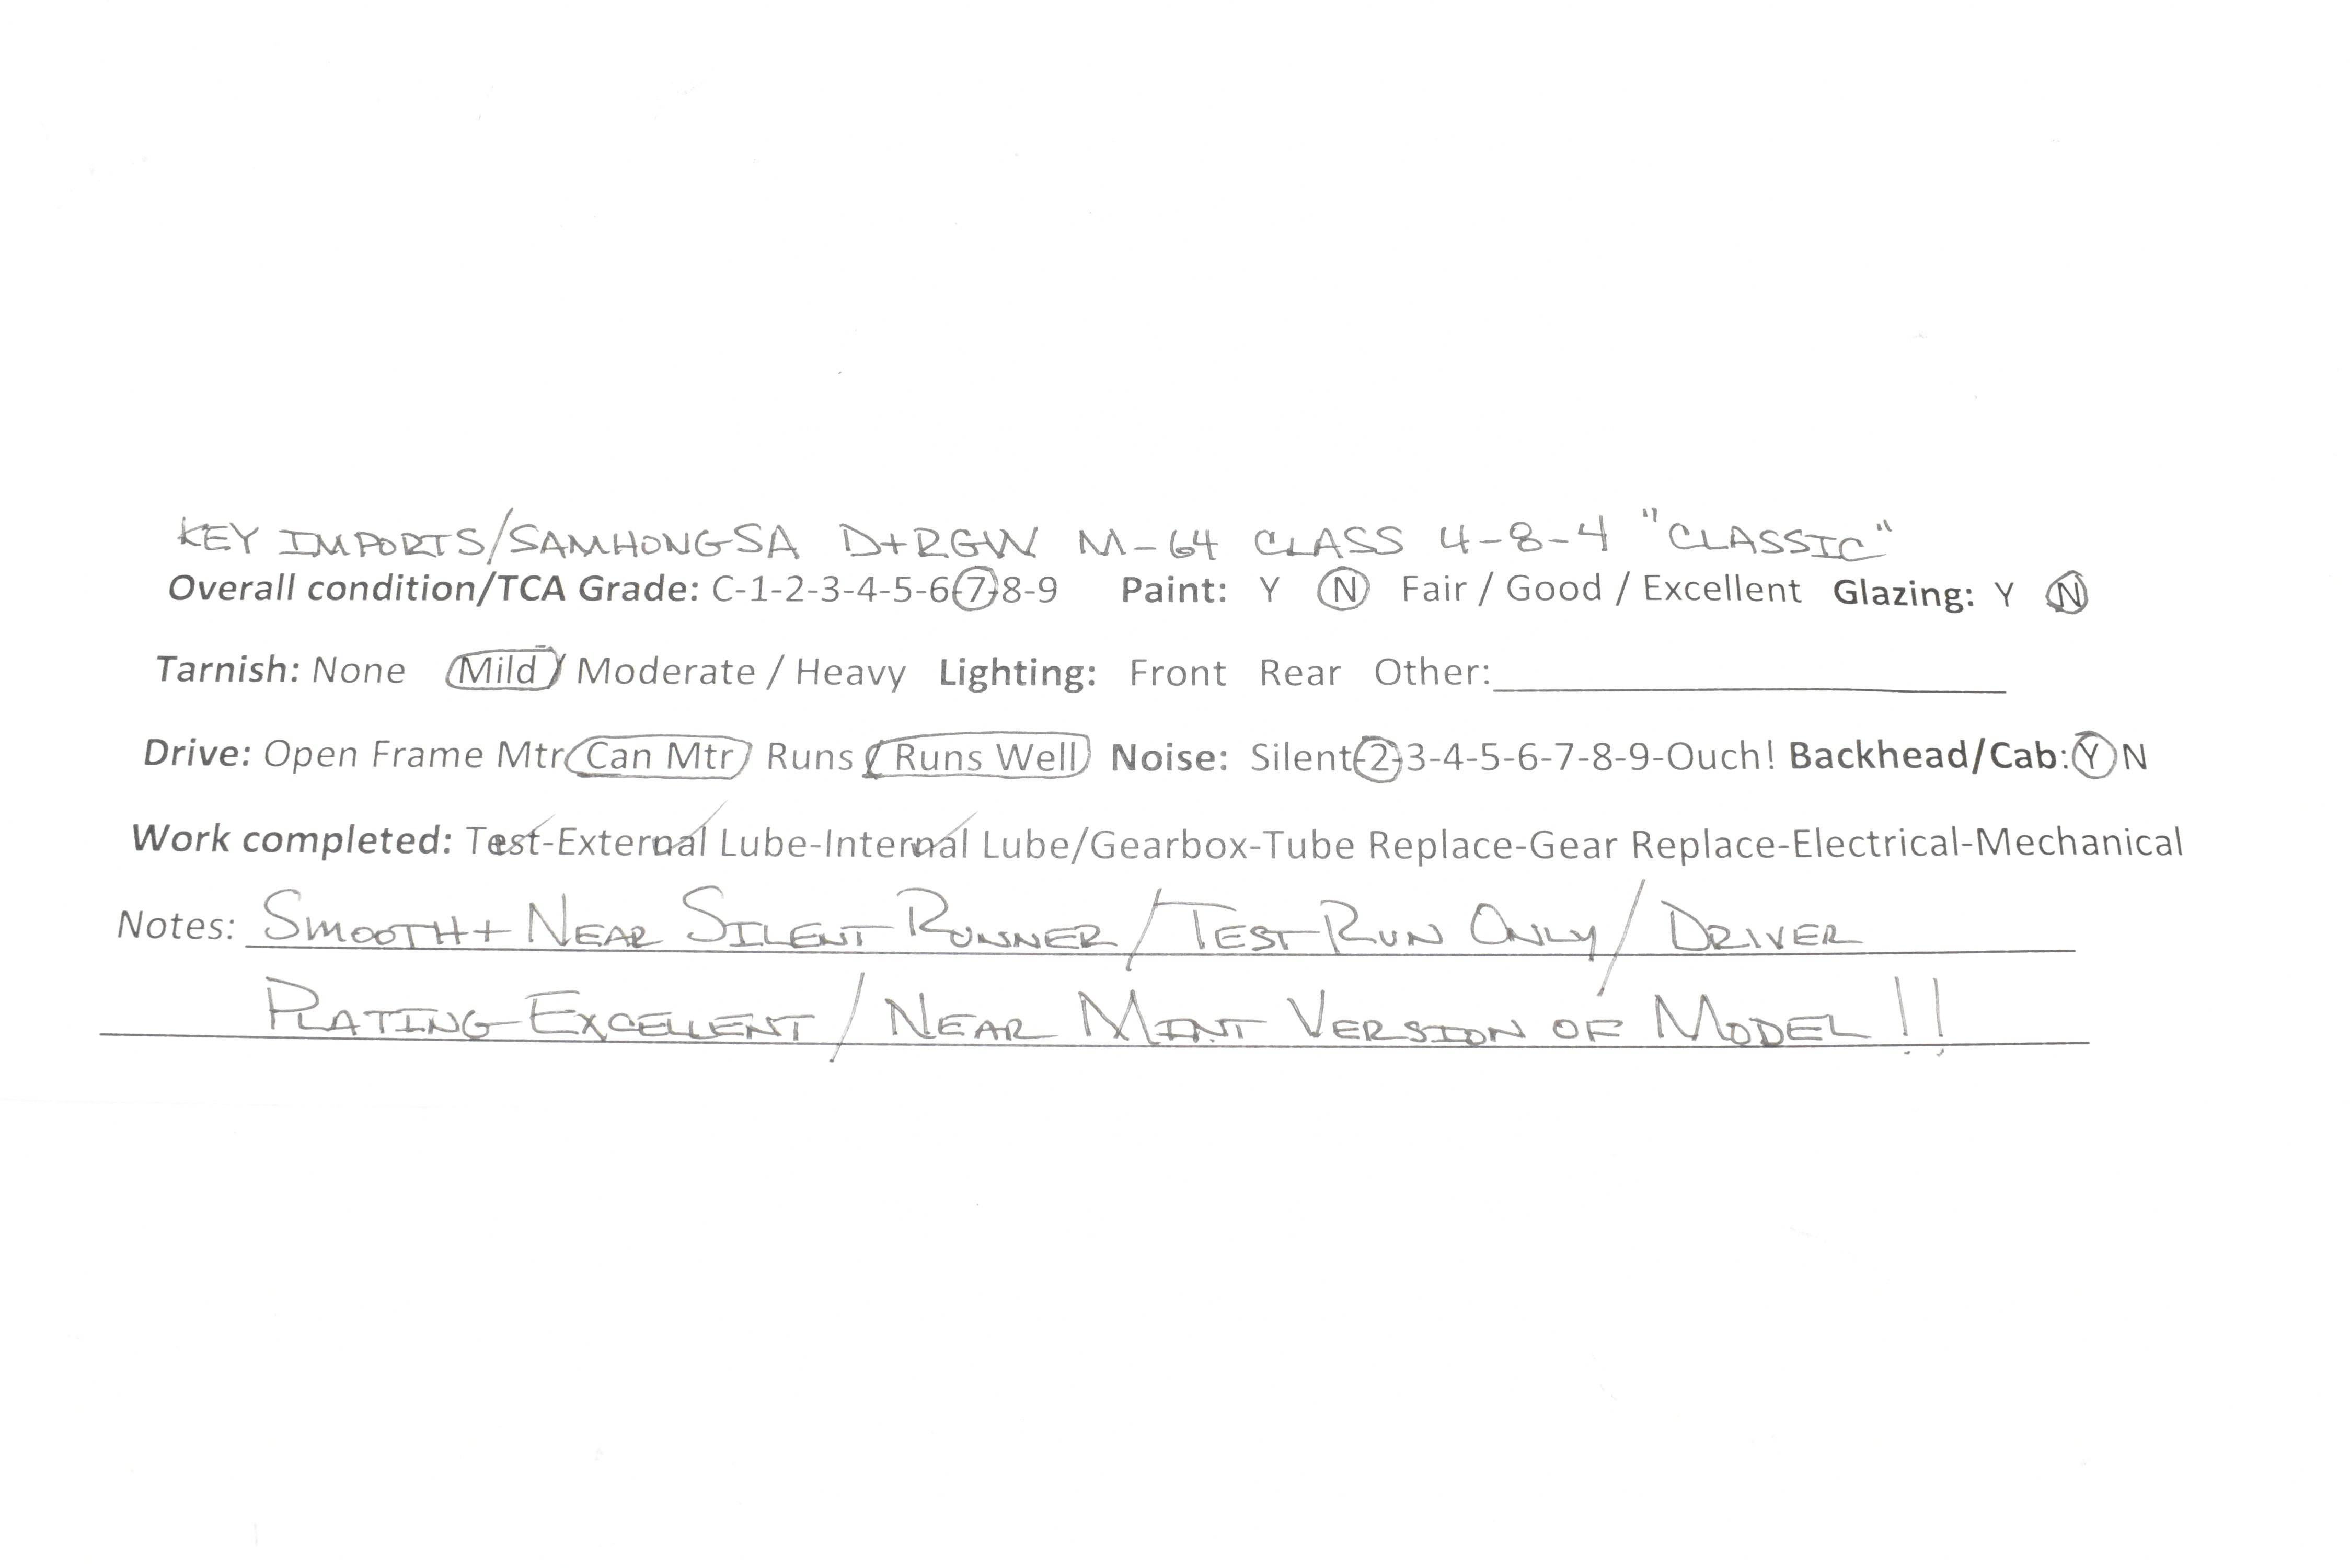 KEY IMPORTS/SAMHONGSA D+RGW M-64 CLASS 4-8-4 "CLASSIC"
Overall condition/TCA Grade: C-1-2-3-4-5-6-7-8-9 Paint: Y N Fair / Good / Excellent Glazing: Y N
Tarnish: None Mild / Moderate / Heavy Lighting: Front Rear Other:
Drive: Open Frame Mtr Can Mtr Runs / Runs Well Noise: Silent-2-3-4-5-6-7-8-9-Ouch! Backhead/Cab: Y N
Work completed: Test-External Lube-Internal Lube/Gearbox-Tube Replace-Gear Replace-Electrical-Mechanical
Notes: SMOOTH + NEAR SILENT RUNNER / TEST RUN ONLY / DRIVER
PLATING EXCELLENT / NEAR MINT VERSION OF MODEL !!